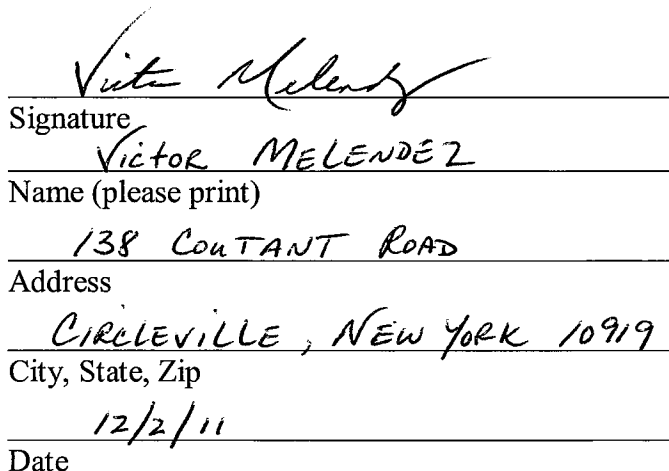 Victor Melendez
Signature
Victor MELENDEZ
Name (please print)
138 COUTANT ROAD
Address
CIRCLEVILLE, NEW YORK 10919
City, State, Zip
12/2/11
Date